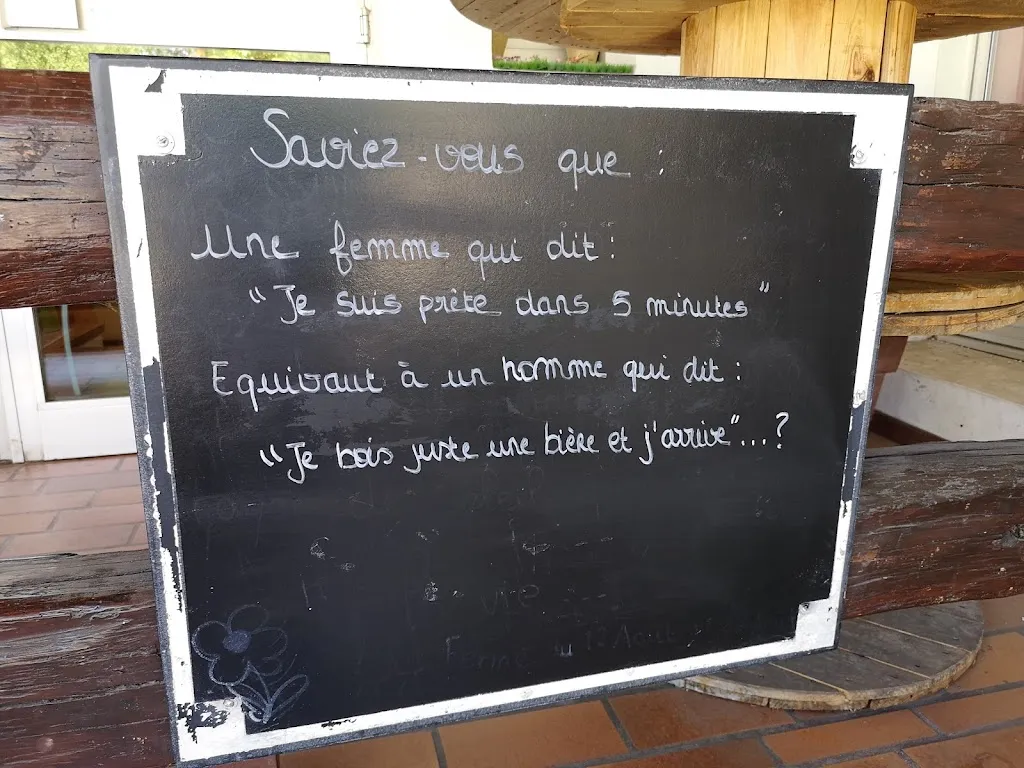 Saviez-vous que :
Une femme qui dit :
"Je suis prête dans 5 minutes"
Equivaut à un homme qui dit :
"Je bois juste une bière et j'arrive"...?